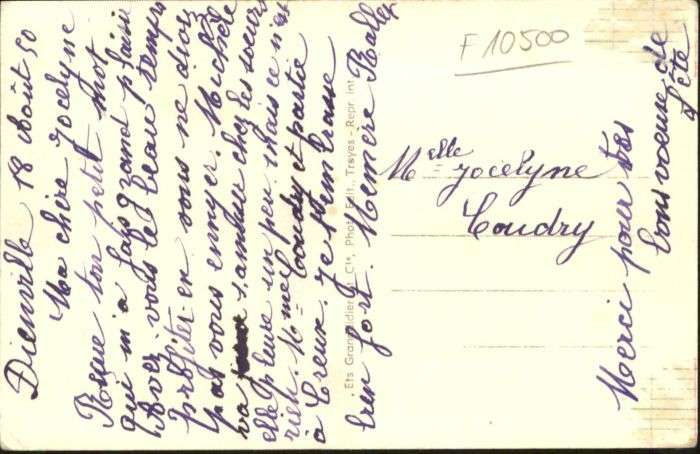 Dienville 18 Août 50
Ma chère Jocelyne
Reçue ton petit mot
qui m'a fais grand plaisir
Avez vous le beau temps
profiter-en vous ne divez
pas vous ennuyer. Michèle
va s'amuser chez les soeurs
elle pleure un peu. Mais ce n'est
rien. Mme Coudry et partie
à Creux. Je t'embrasse
bien fort. Mémère
Ets Grandidier & Cie, Phot. Edit., Troyes - Repr. int.
F10500
Melle Jocelyne
Coudry
Merci pour tes
bons voeux de
fête